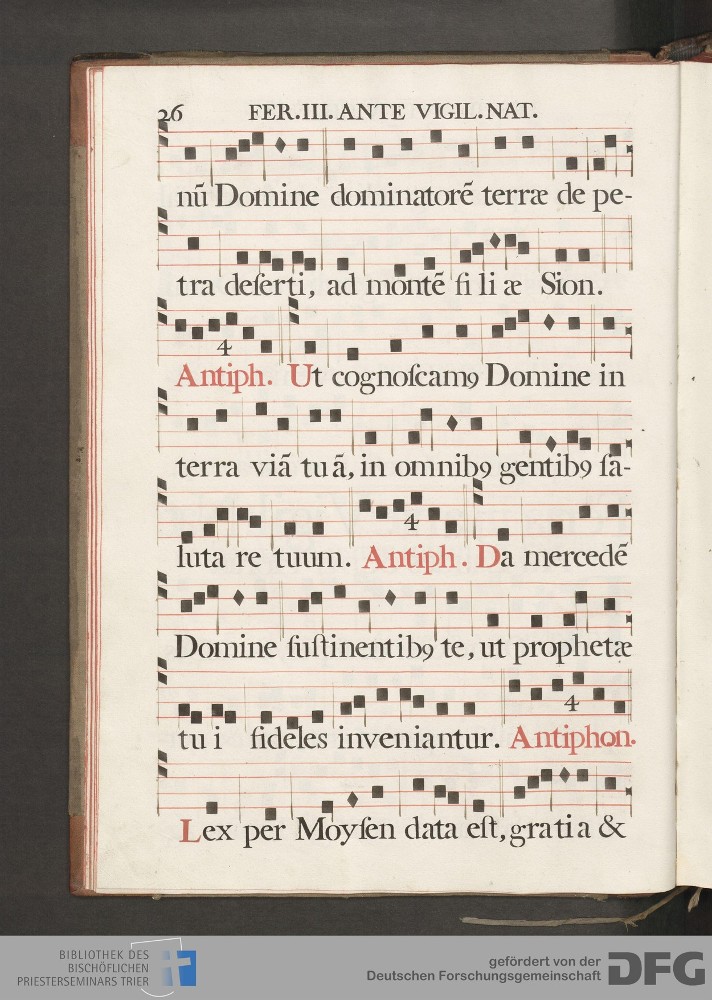 26 FER.III. ANTE VIGIL. NAT.
nū Domine dominatorē terræ de pe-
tra deſerti, ad montē fi li æ Sion.
4
Antiph. Ut cognoſcamꝯ Domine in
terra viã tuã, in omnibꝯ gentibꝯ ſa-
4
luta re tuum. Antiph. Da mercedē
Domine ſuſtinentibꝯ te, ut prophetæ
4
tu i fideles inveniantur. Antiphon.
Lex per Moyſen data eſt, gratia &
BIBLIOTHEK DES
BISCHÖFLICHEN
PRIESTERSEMINARS TRIER
gefördert von der
Deutschen Forschungsgemeinschaft
DFG